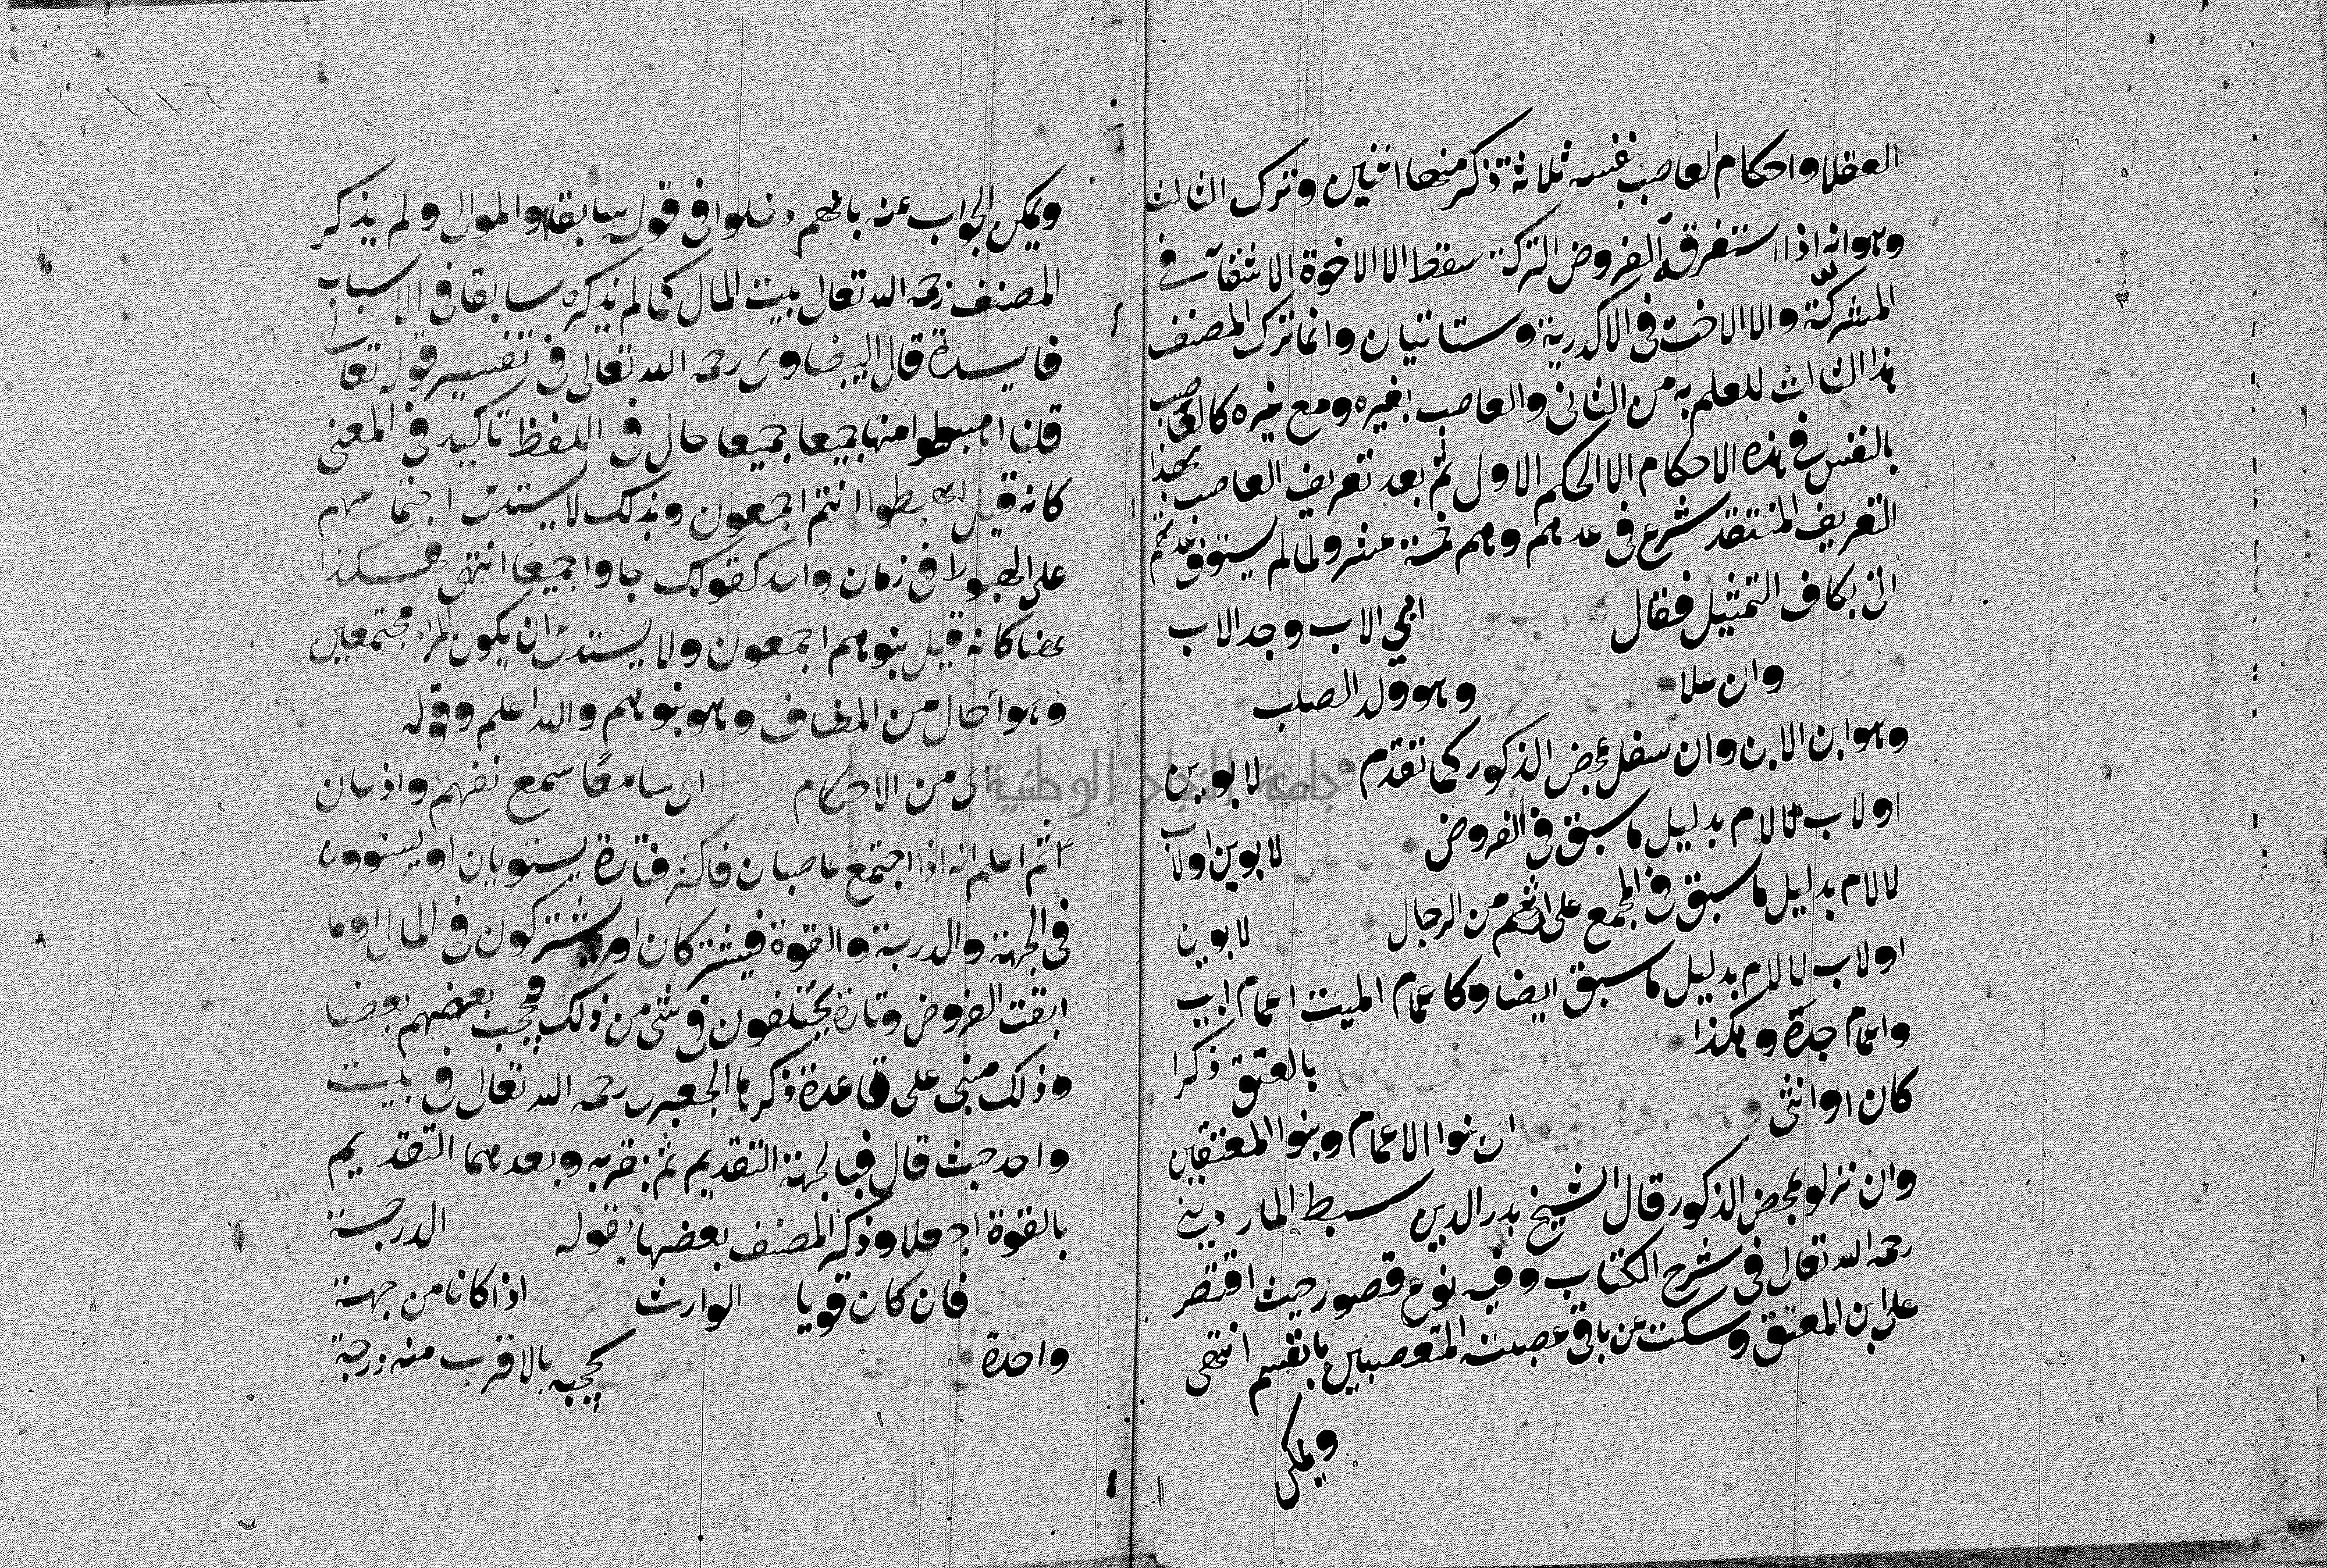 العقلا واحكام العاصب بنفسه ثلاثة ذكر منها اثنين وترك الثالث
وهو انه اذا استغرقة الفروض التركة سقط الا الاخوة الاشقآ في
المشركّة والا الاخت في الاكدرية وستاتيان وانما ترك المصنف
هذا الثالث للعلم به من الثاني والعاصب بغيره ومع غيره كالعاصب
بالنفس في هذه الاحكام الا الحكم الاول ثم بعد تعريف العاصب بهذا
التعريف المنتقد شرع في عدهم وهم خمسة عشر ولما لم يستوف عدتهم
اتى بكاف التمثيل فقال ابي الاب وجد الاب
وان علا وهو ولد الصلب
وهو ابن الابن وان سفل بمحض الذكور كما تقدم لابوين
او لاب لا لام بدليل ما سبق في الفروض لابوين او لاب
لا لام بدليل ما سبق في المجمع على ارثهم من الرجال لابوين
او لاب لا للام بدليل ما سبق ايضا وكاعمام الميت اعمام ابيه
واعمام جده وهكذا بالعتق ذكرا
كان او انثى اى بنوا الاعمام وبنوا المعتقين
وان نزلو بمحض الذكور قال الشيخ بدر الدين سبط المارديني
رحمه الله تعالى في شرح الكتاب وفيه نوع قصور حيث اقتصر
على ابن المعتق وسكت عن باقي عصبته المتعصبين بانفسهم انتهى
ويمكن
١١٦
ويمكن الجواب عنه بانهم دخلوا في قوله سابقا والموالى ولم يذكر
المصنف رحمه الله تعالى بيت المال كما لم يذكره سابقا في الاسباب
فايدة قال البيضاوى رحمه الله تعالى في تفسير قوله تعالى
قلنا اهبطوا منها جميعا جميعا حال في اللفظ تاكيد في المعنى
كانه قيل اهبطوا انتم اجمعون وبذلك لا يستدعى اجتماعهم
على الهبوط في زمان واحد كقولك جاوا جميعا انتهى فهكذا
هنا كانه قيل بنوهم اجمعون ولا يستدعى ان يكون المراد مجتمعين
وهو حال من المضاف وهو بنوهم والله اعلم وقوله
اى من الاحكام اى سامعًا سمع تفهم واذعان
ثم اعلم انه اذا اجتمع عاصبان فاكثر فتارة يستويان او يستوون
في الجهة والدرجة والقوة فيشتركان او يشتركون في المال او ما
ابقت الفروض وتارة يختلفون في شى من ذلك فيحجب بعضهم بعضا
وذلك مبنى على قاعدة ذكرها الجعبرى رحمه الله تعالى في بيت
واحد حيث قال فبالجهة التقديم ثم بقربه وبعدهما التقديم
بالقوة اجعلا وذكر المصنف بعضها بقوله الدرجة
فان كان قويا الوارث اذا كانا من جهة
واحدة يحجبه بالاقرب منه درجة
جامعة النجاح الوطنية